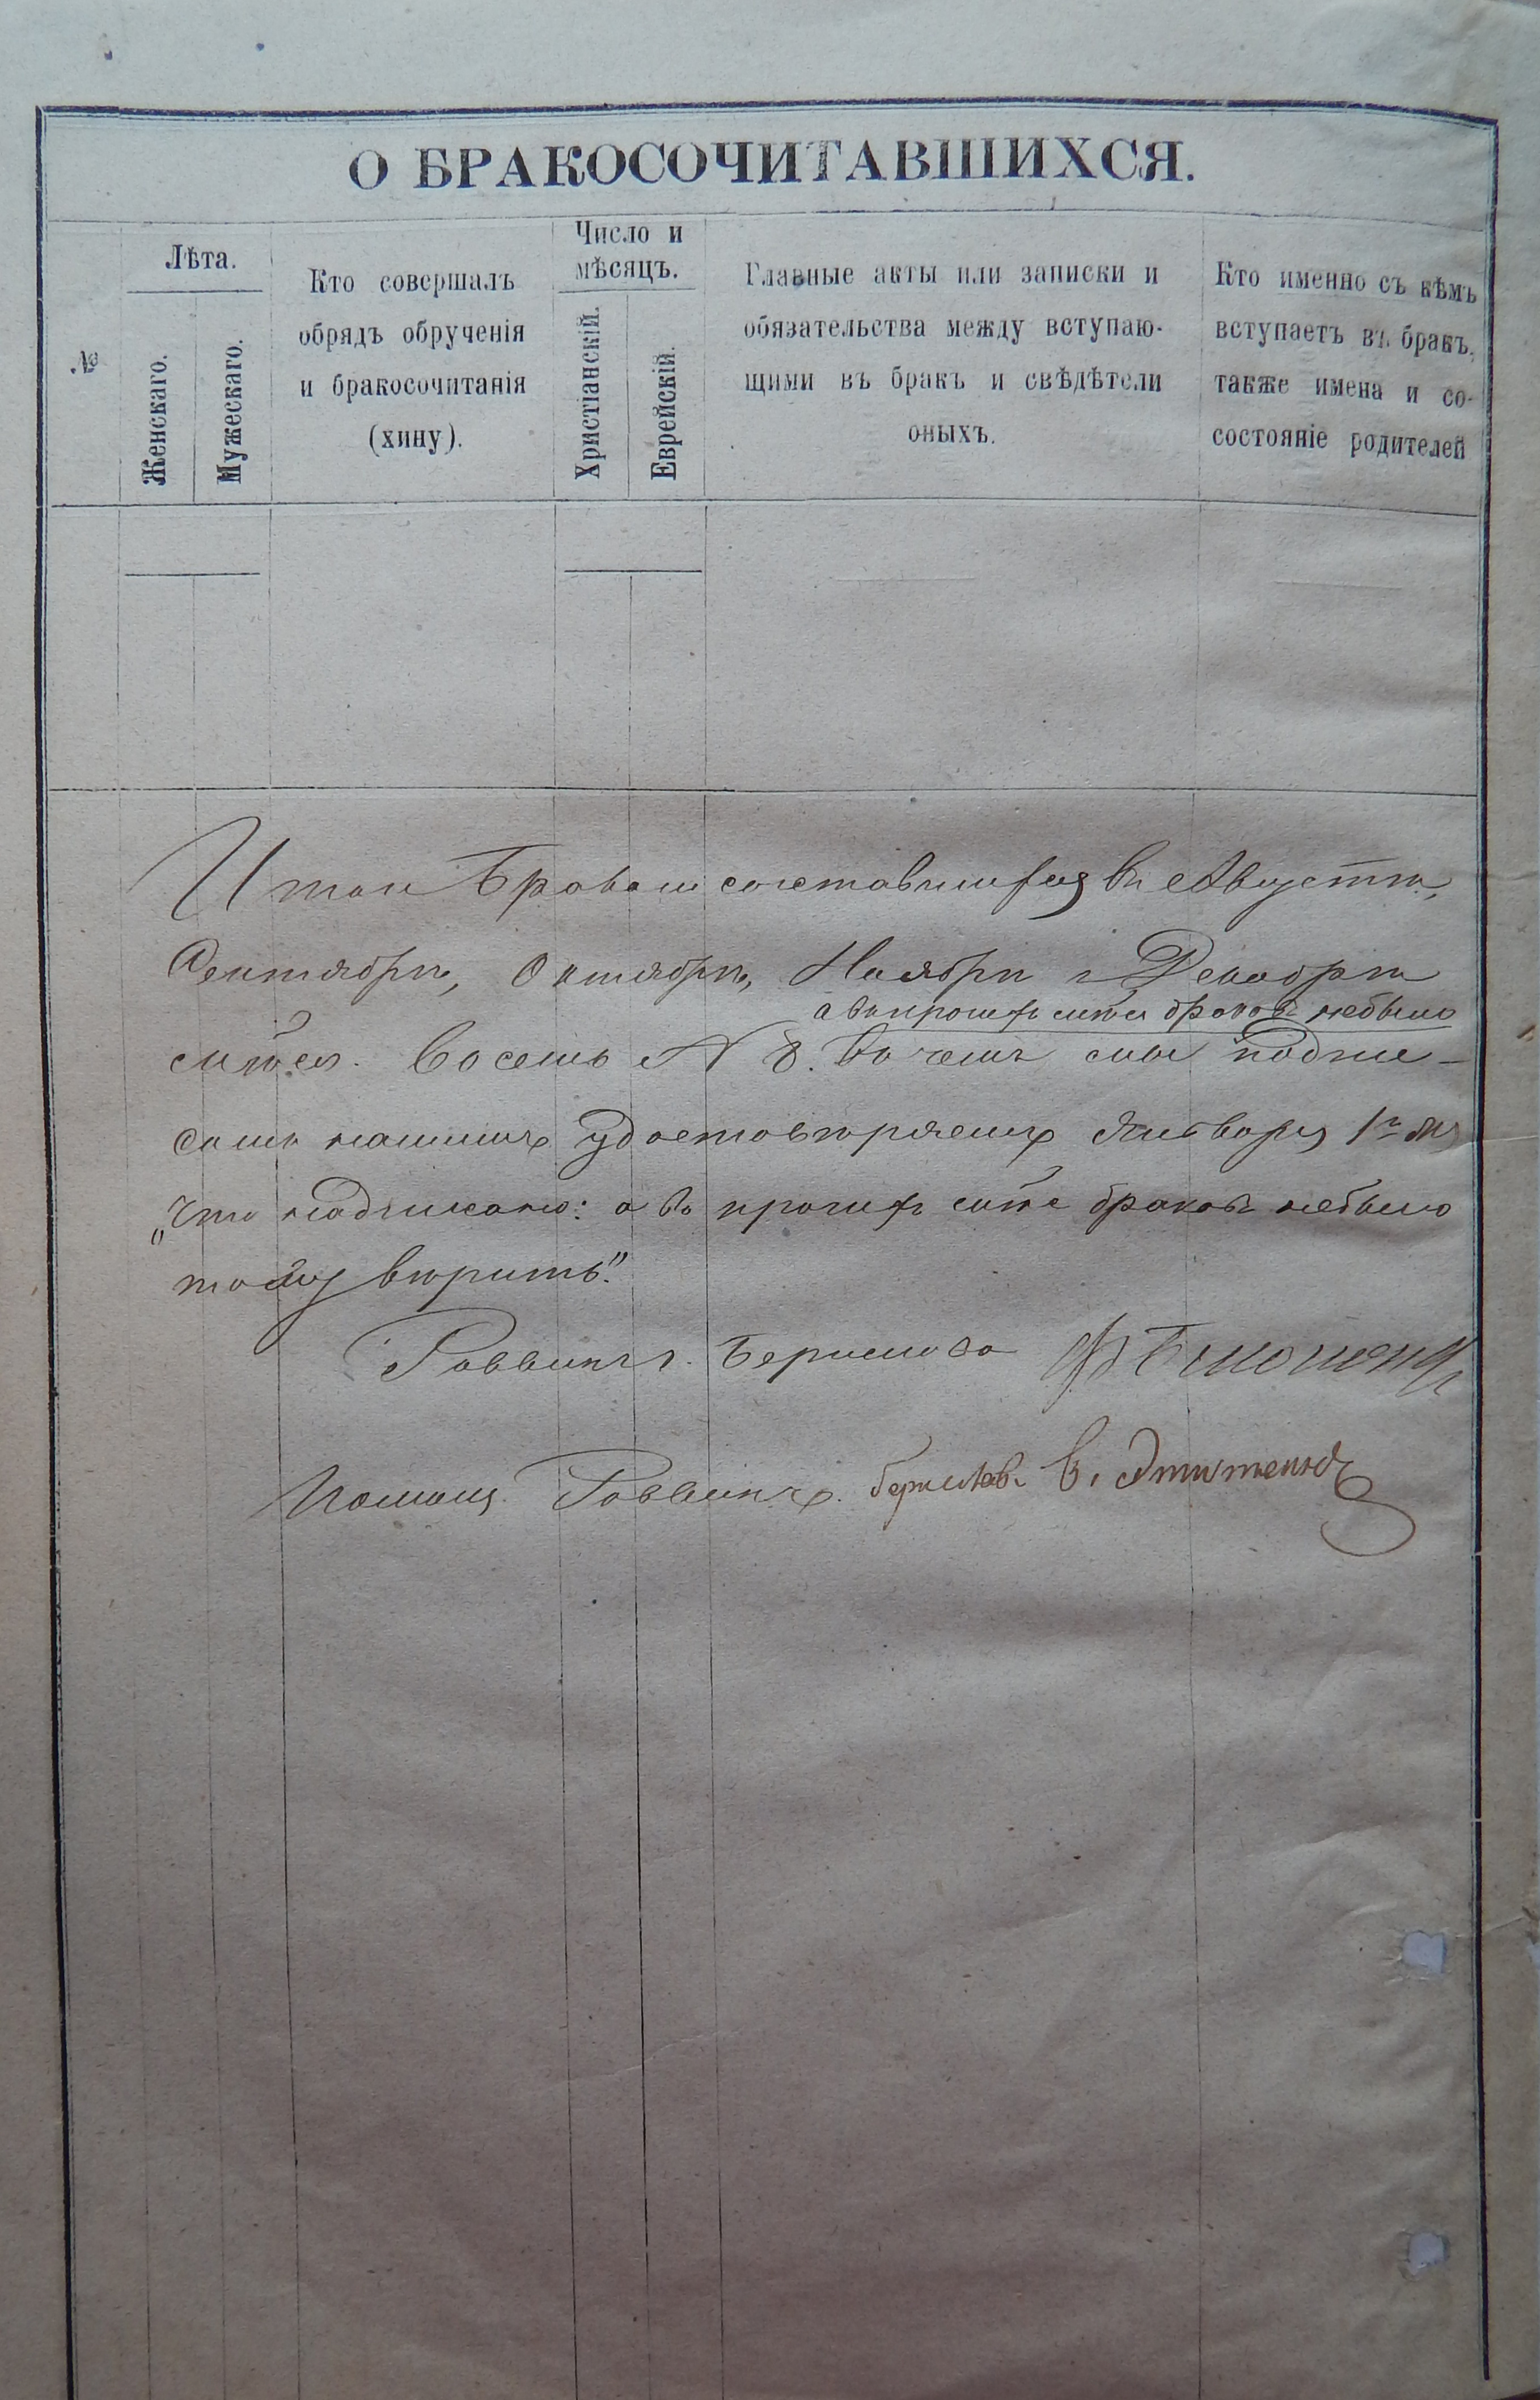 О БРАКОСОЧИТАВШИХСЯ.
№
Лѣта.
Женскаго.
Мужескаго.
Кто совершалъ
обрядъ обрученія
и бракосочитанія
(хину).
Число и
мѣсяцъ.
Христіанскій.
Еврейскій.
Главные акты или записки и
обязательства между вступаю-
щими въ бракъ и свѣдѣтели
оныхъ.
Кто именно съ кѣмъ
вступаетъ въ бракъ,
также имена и со-
состояніе родителей
Итого Браковъ въ Августѣ,
Сентябрѣ, Октябрѣ, Ноябрѣ и Декабрѣ
а въ браковъ небыло
восемь № 8. Въ чемъ подпи-
удостовѣряемъ Января 1го
„Что надписано: а въ браковъ небыло
тому вѣрить."
Раввинъ г. Берислава
Помощ. Раввина г. Берислава В. Этитейнъ